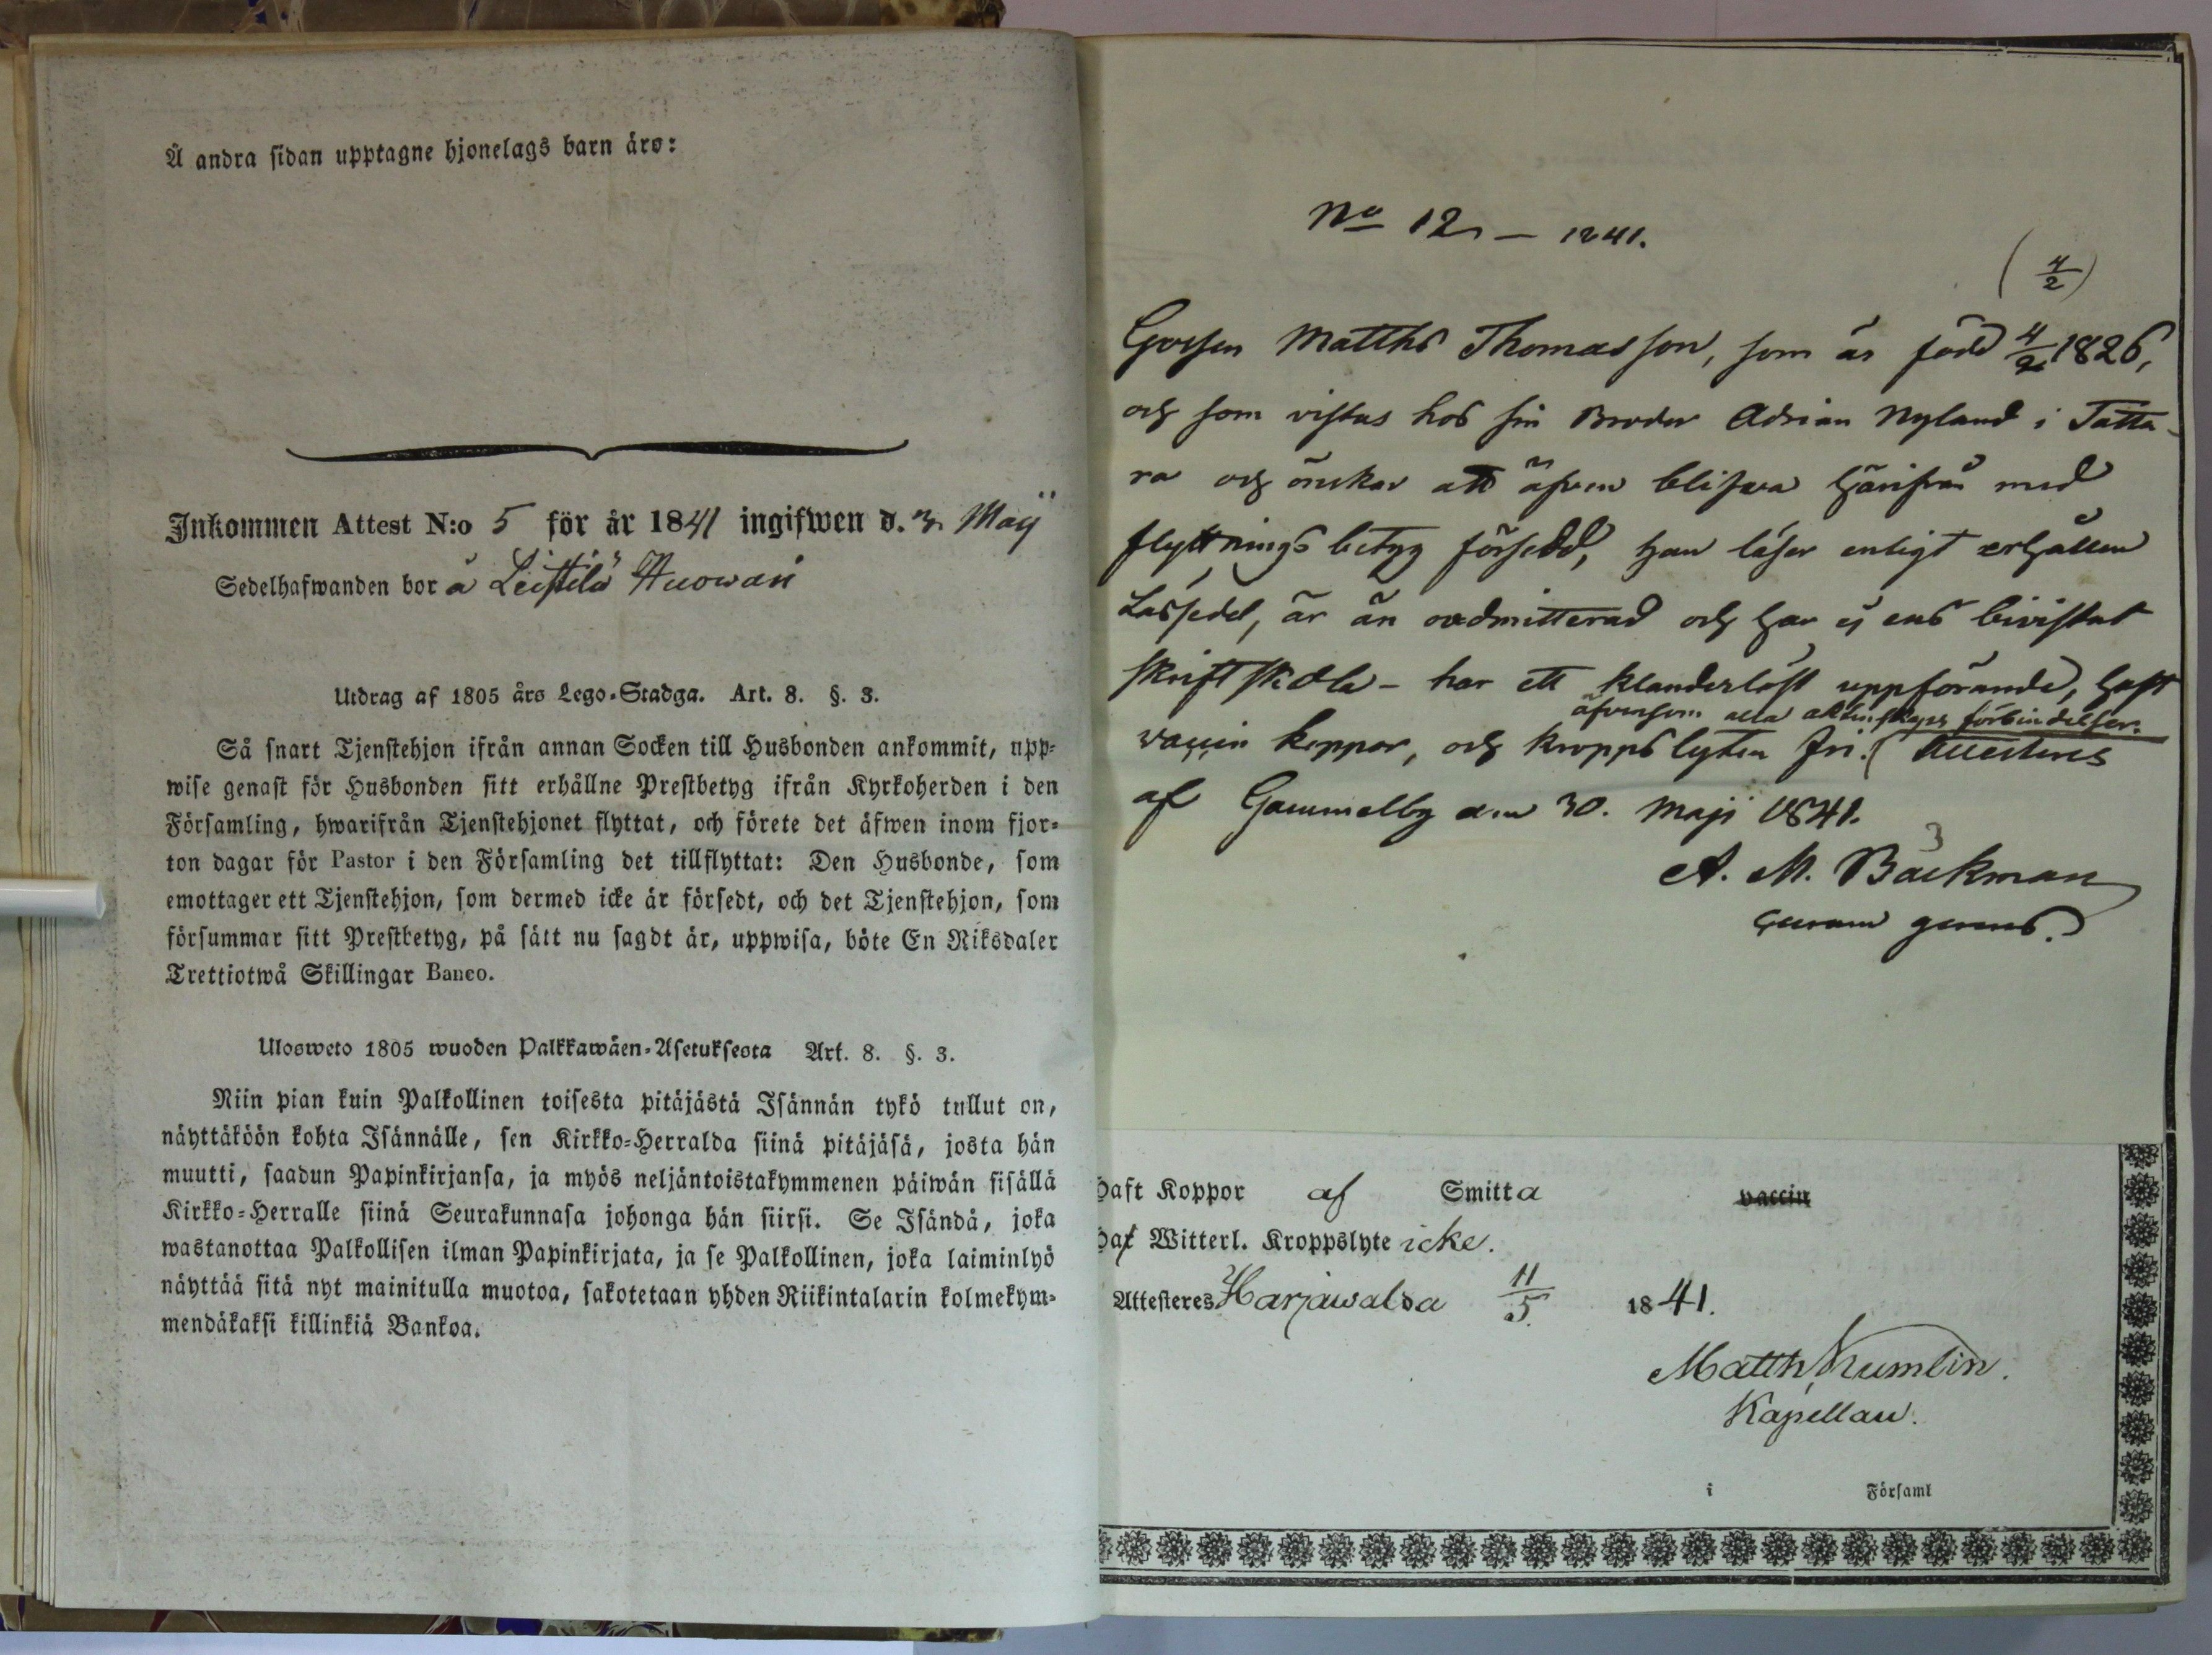 Å andra sidan upptagne hjonelags barn äro:
Inkommen Attest N:o 5 för år 1841 ingifwen d. 3. Maij
Sedelhafwanden bor å Leistilä Huowari
Utdrag af 1805 års Lego-Stadga. Art. 8. §. 3.
Så snart Tjenstehjon ifrån annan Socken till Husbonden ankommit, upp-
wise genast för Husbonden sitt erhållne Prestbetyg ifrån Kyrkoherden i den
Församling, hwarifrån Tjenstehjonet flyttat, och förete det äfwen inom fjor-
ton dagar för Pastor i den Församling det tillflyttat: Den Husbonde, som
emottager ett Tjenstehjon, som dermed icke är försedt, och det Tjenstehjon, som
försummar sitt Prestbetyg, på sätt nu sagdt är, uppwisa, böte En Riksdaler
Trettiotwå Skillingar Banco.
Ulosweto 1805 wuoden Palkkawäen-Asetuksesta Art. 8. §. 3.
Niin pian kuin Palkollinen toisesta pitäjästä Isännän tykö tullut on,
näyttäköön kohta Isännälle, sen Kirkko-Herralda siinä pitäjäsä, josta hän
muutti, saadun Papinkirjansa, ja myös neljäntoistakymmenen päiwän sisällä
Kirkko-Herralle siinä Seurakunnasa johonga hän siirsi. Se Isändä, joka
wastanottaa Palkollisen ilman Papinkirjata, ja se Palkollinen, joka laiminlyö
näyttää sitä nyt mainitulla muotoa, sakotetaan yhden Riikintalarin kolmekym-
mendäkaksi killinkiä Bankoa.
No 12 – 1841.
(4/2)
Gossen Matths Thomasson, som är född 4/2 1826,
och som vistas hos sin Broder Adrian Nyland i Tatta-
ra och önskar att äfven blifva härifrån med
flyttningsbetyg försedd, han läser enligt erhållen
Lässedel, är än oadmitterad och har ej ens bivistat
skriftskola – har ett klanderlöst uppförande, haft
äfvensom alla aktenskaps förbindelser.
vaccin koppor, och kroppslyten fri. ( Attesteres
af Gammelby den 30. Maji 1841.
3
A. M. Backman
Curam gerens.
Haft Koppor af Smitta vaccin
Har Witterl. Kroppslyte icke.
Attesteres Harjawalda 11/5 1841.
Matth Kumlin.
Kapellan.
i Församl